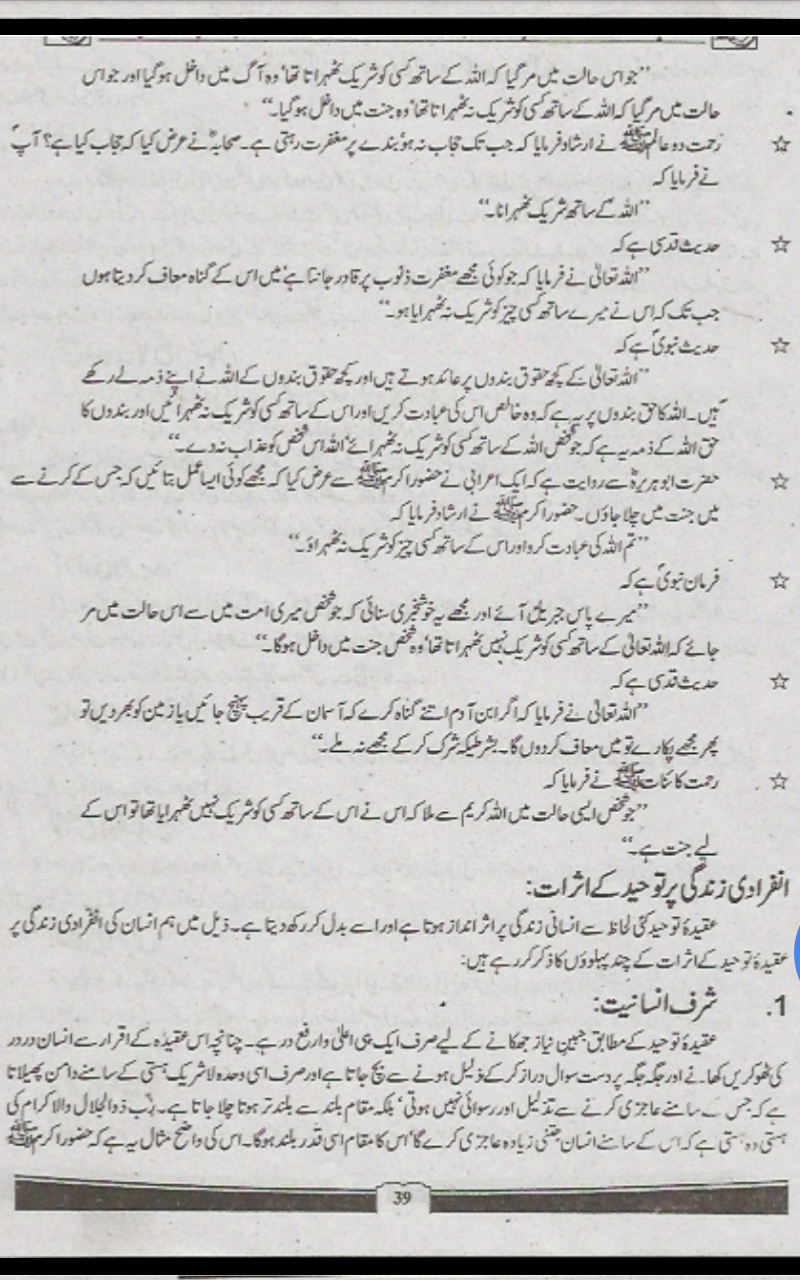 ”جو اس حالت میں مر گیا کہ اللہ کے ساتھ کسی کو شریک ٹھہراتا تھا‘ وہ آگ میں داخل ہو گیا اور جو اس
حالت میں مر گیا کہ اللہ کے ساتھ کسی کو شریک نہ ٹھہراتا تھا‘ وہ جنت میں داخل ہو گیا۔“
☆ رحمت دو عالم ﷺ نے ارشاد فرمایا کہ جب تک حجاب نہ ہو‘ بندے پر مغفرت رہتی ہے۔ صحابہؓ نے عرض کیا کہ حجاب کیا ہے؟ آپؐ
نے فرمایا کہ
”اللہ کے ساتھ شریک ٹھہرانا۔“
☆ حدیث قدسی ہے کہ
”اللہ تعالیٰ نے فرمایا کہ جو کوئی مجھے مغفرت ذنوب پر قادر جانتا ہے‘ میں اس کے گناہ معاف کر دیتا ہوں
جب تک کہ اس نے میرے ساتھ کسی چیز کو شریک نہ ٹھہرایا ہو۔“
☆ حدیث نبویؐ ہے کہ
”اللہ تعالیٰ کے کچھ حقوق بندوں پر عائد ہوتے ہیں اور کچھ حقوق بندوں کے اللہ نے اپنے ذمہ لے رکھے
ہیں۔ اللہ کا حق بندوں پر یہ ہے کہ وہ خالص اس کی عبادت کریں اور اس کے ساتھ کسی کو شریک نہ ٹھہرائیں اور بندوں کا
حق اللہ کے ذمہ یہ ہے کہ جو شخص اللہ کے ساتھ کسی کو شریک نہ ٹھہرائے‘ اللہ اس شخص کو عذاب نہ دے۔“
☆ حضرت ابوہریرہؓ سے روایت ہے کہ ایک اعرابی نے حضور اکرم ﷺ سے عرض کیا کہ مجھے کوئی ایسا عمل بتائیں کہ جس کے کرنے سے
میں جنت میں چلا جاؤں۔ حضور اکرم ﷺ نے ارشاد فرمایا کہ
”تم اللہ کی عبادت کرو اور اس کے ساتھ کسی چیز کو شریک نہ ٹھہراؤ۔“
☆ فرمان نبویؐ ہے کہ
”میرے پاس جبریلؑ آئے اور مجھے یہ خوشخبری سنائی کہ جو شخص میری امت میں سے اس حالت میں مر
جائے کہ اللہ تعالیٰ کے ساتھ کسی کو شریک نہیں ٹھہراتا تھا‘ وہ شخص جنت میں داخل ہوگا۔“
☆ حدیث قدسی ہے کہ
”اللہ تعالیٰ نے فرمایا کہ اگر ابن آدم اتنے گناہ کرے کہ آسمان کے قریب پہنچ جائیں یا زمین کو بھر دیں تو
پھر مجھے پکارے تو میں معاف کر دوں گا۔ بشرطیکہ شرک کر کے مجھے نہ ملے۔“
☆ رحمت کائنات ﷺ نے فرمایا کہ
”جو شخص ایسی حالت میں اللہ کریم سے ملا کہ اس نے اس کے ساتھ کسی کو شریک نہیں ٹھہرایا تھا تو اس کے
لیے جنت ہے۔“
انفرادی زندگی پر توحید کے اثرات:
عقیدۂ توحید کئی لحاظ سے انسانی زندگی پر اثر انداز ہوتا ہے اور اسے بدل کر رکھ دیتا ہے۔ ذیل میں ہم انسان کی انفرادی زندگی پر
عقیدۂ توحید کے اثرات کے چند پہلوؤں کا ذکر کر رہے ہیں:
1. شرف انسانیت:
عقیدۂ توحید کے مطابق جبینِ نیاز جھکانے کے لیے صرف ایک ہی اعلیٰ و ارفع در ہے۔ چنانچہ اس عقیدہ کے اقرار سے انسان در در
کی ٹھوکریں کھانے اور جگہ جگہ پر دست سوال دراز کر کے ذلیل ہونے سے بچ جاتا ہے اور صرف اسی وحدہ لاشریک ہستی کے سامنے دامن پھیلاتا
ہے کہ جس کے سامنے عاجزی کرنے سے تذلیل اور رسوائی نہیں ہوتی‘ بلکہ مقام بلند سے بلند تر ہوتا چلا جاتا ہے۔ رب ذوالجلال والاکرام کی
ہستی وہ ہستی ہے کہ اس کے سامنے انسان جتنی زیادہ عاجزی کرے گا‘ اس کا مقام اسی قدر بلند ہوگا۔ اس کی واضح مثال یہ ہے کہ حضور اکرم ﷺ
39